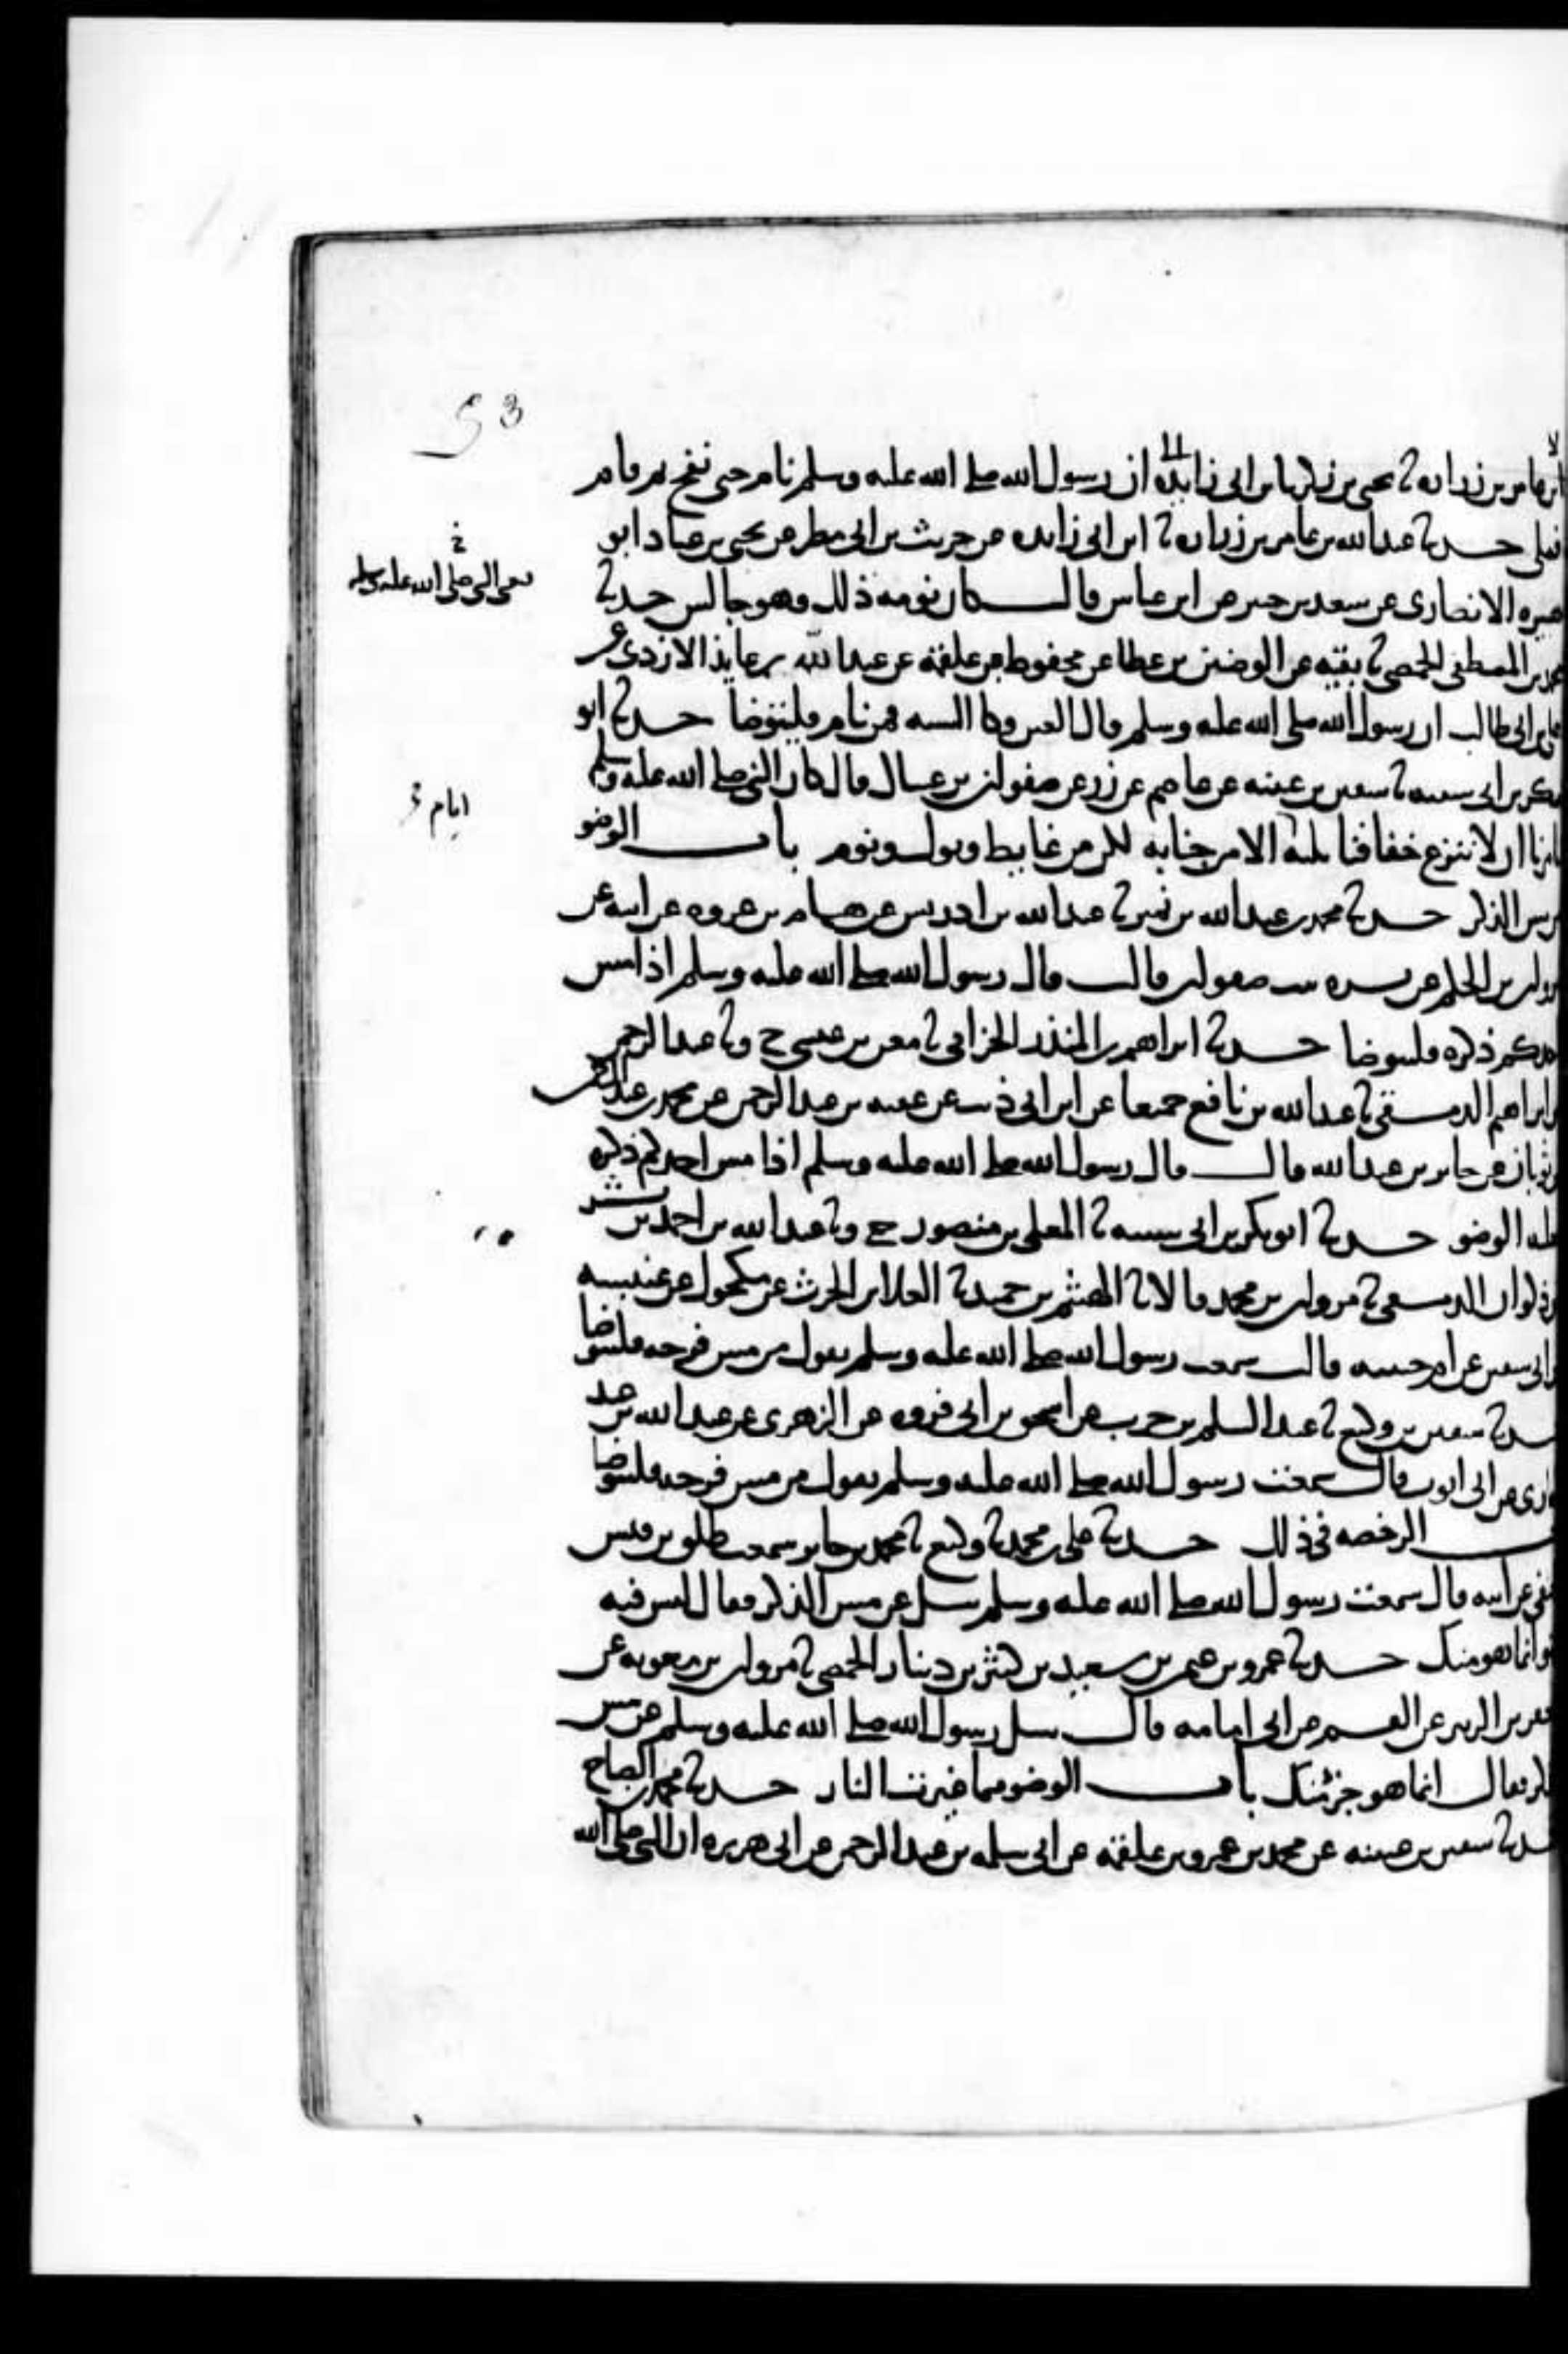 53
عامر بن زراره ثنا يحيى بن زكريا بن ابى زايده ان رسول الله صلى الله عليه وسلم نام حتى نفخ ثم قام
فصلى حدثنا عبد الله بن عامر بن زراره ثنا ابن ابى زايده عن حريث بن ابى مطر عن يحيى بن عباد ابو
هبيره الانصارى عن سعيد بن جبير عن ابن عباس قال كان نومه ذلك وهو جالس حدثنا
يعنى النبى صلى الله عليه وسلم
محمد بن المصطفى الحمصى ثنا بقيه عن الوضين بن عطا عن محفوظ بن علقمه عن عبد الله بن عايذ الازدى عن
على بن ابى طالب ان رسول الله صلى الله عليه وسلم قال العين وكا السه فمن نام فليتوضا حدثنا ابو
بكر بن ابى شيبه ثنا سفين بن عيينه عن عاصم عن زر عن صفوان بن عسال قال كان النبى صلى الله عليه وسلم
ايام
يامرنا ان لا ننزع خفافنا ثلثه الا من جنابه لكن من غايط وبول ونوم باب الوضو
من مس الذكر حدثنا محمد بن عبد الله بن نمير ثنا عبد الله بن ادريس عن هشام بن عروه عن ابيه عن
مروان بن الحكم عن بسره بنت صفوان قالت قال رسول الله صلى الله عليه وسلم اذا مس
احدكم ذكره فليتوضا حدثنا ابراهيم بن المنذر الحزامى ثنا معن بن عيسى ح وثنا عبد الرحمن
بن ابراهيم الدمشقى ثنا عبد الله بن نافع جميعا عن ابن ابى ذيب عن عقبه بن عبد الرحمن عن محمد بن عبد الرحمن
بن ثوبان عن جابر بن عبد الله قال قال رسول الله صلى الله عليه وسلم اذا مس احدكم ذكره
فعليه الوضو حدثنا ابو بكر بن ابى شيبه ثنا المعلى بن منصور ح وثنا عبد الله بن احمد بن بشير
بن ذكوان الدمشقى ثنا مروان بن محمد قالا ثنا الهيثم بن حميد ثنا العلا بن الحرث عن مكحول عن عنبسه
بن ابى سفين عن ام حبيبه قالت سمعت رسول الله صلى الله عليه وسلم يقول من مس فرجه فليتوضا
حدثنا سفين بن وكيع ثنا عبد السلم بن حرب عن اسحق بن ابى فروه عن الزهرى عن عبد الله بن عبد
القارى عن ابى ايوب قال سمعت رسول الله صلى الله عليه وسلم يقول من مس فرجه فليتوضا
باب الرخصه فى ذلك حدثنا على بن محمد ثنا وكيع ثنا محمد بن جابر سمعت طلق بن قيس
الحنفى عن ابيه قال سمعت رسول الله صلى الله عليه وسلم سيل عن مس الذكر فقال ليس فيه
وضو انما هو منك حدثنا عمرو بن عثمن بن سعيد بن كثير بن دينار الحمصى ثنا مروان بن معويه عن
جعفر بن الزبير عن القسم عن ابى امامه قال سيل رسول الله صلى الله عليه وسلم عن مس
الذكر فقال انما هو جزء منك باب الوضو مما غيرت النار حدثنا محمد بن الصباح
حدثنا سفين بن عيينه عن محمد بن عمرو بن علقمه عن ابى سلمه بن عبد الرحمن عن ابى هريره ان النبى صلى الله